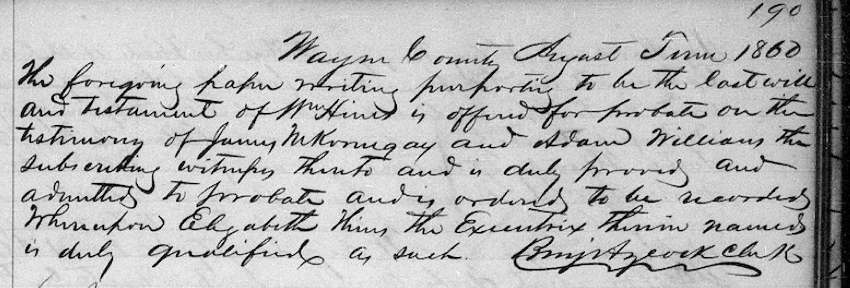 190
Wayne County August Term 1860
The foregoing paper writing purporting to be the last will
and testament of Wm Hines is offered for probate on the
testimony of James M Kornegay and Adam Williams the
subscribing witness thereto and is duly proved and
admitted to probate and is ordered to be recorded
Whereupon Elizabeth Hines the Executrix therein named
is duly qualified as such. Benj Aycock Clerk